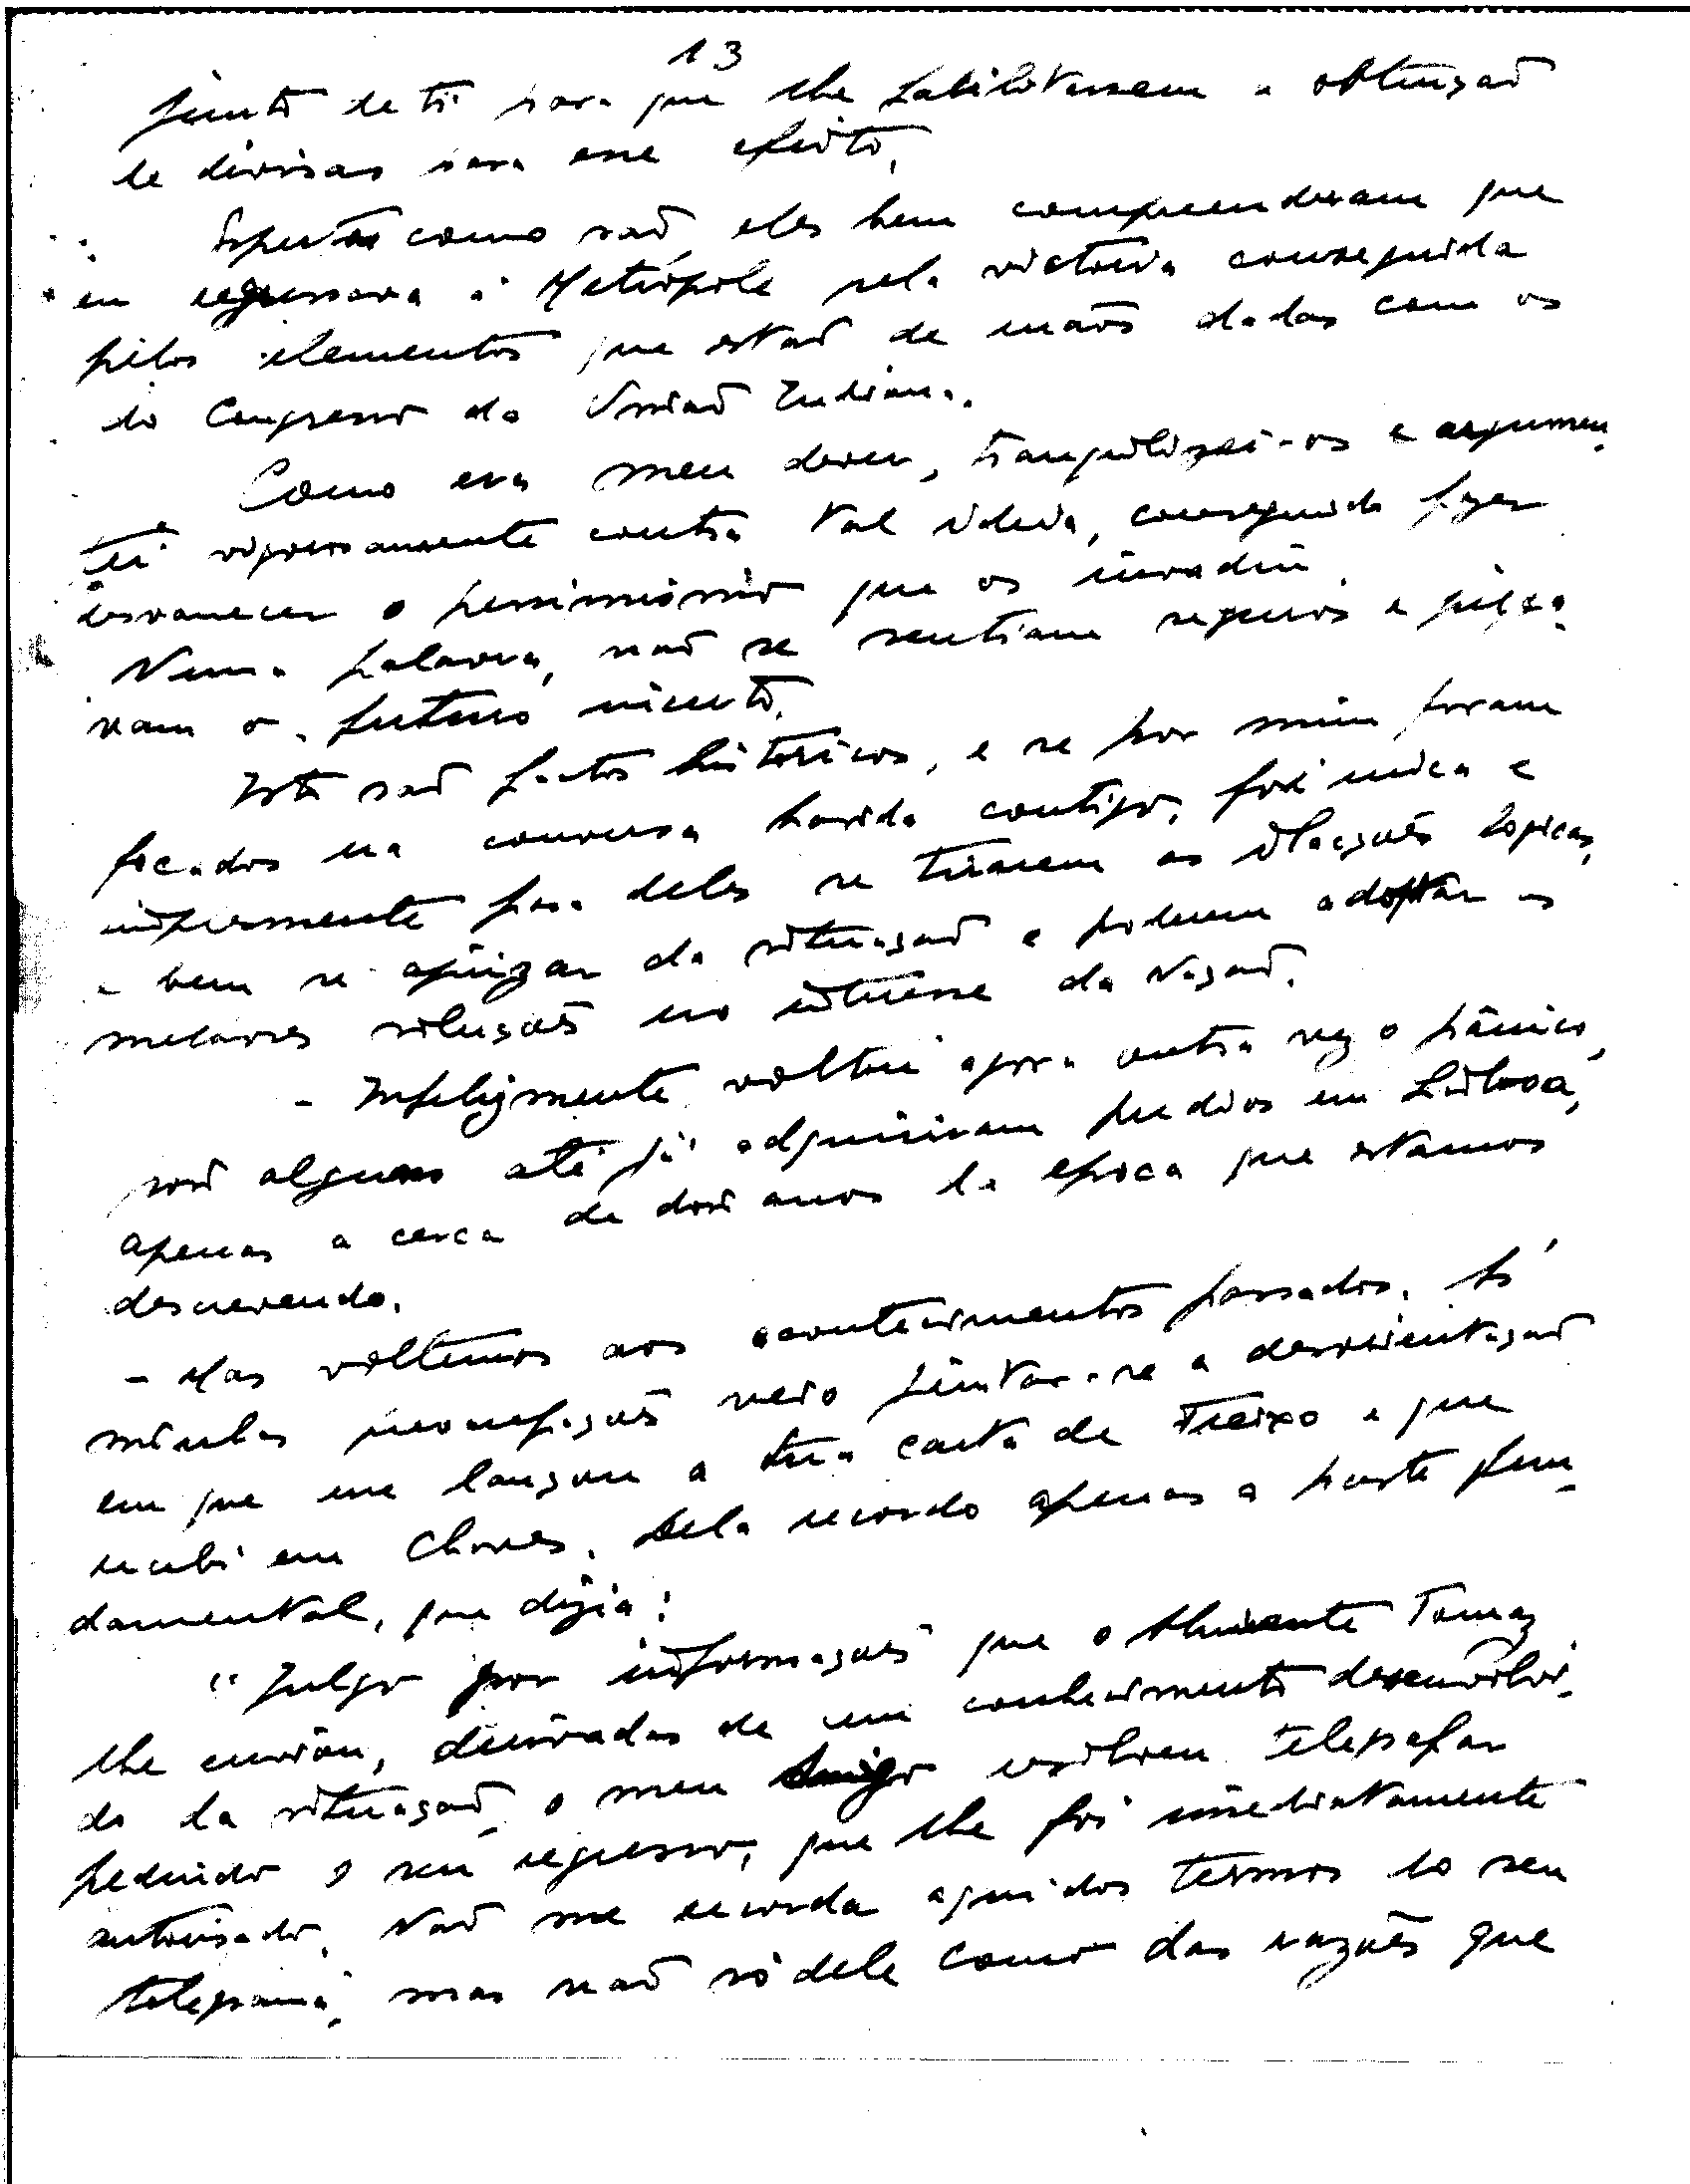 13
junto de ti para que lhe facilitassem a obtenção
de divisas para esse efeito.
Espertos como são, eles bem compreenderam que
eu regressava á Metrópole pela victoria conseguida
pelos elementos que estão de mãos dadas com os
do Congresso da União Indiana.
Como era meu dever, tranquilizei-os e argumen-
tei vigorosamente contra tal ideia, conseguindo fazer
desvanecer o pessimismo que os invadiu.
Numa palavra, não se sentiam seguros e julga-
vam o futuro incerto.
Isto são factos historicos, e se por mim foram
focados na conversa havida contigo, foi unica e
simplesmente para deles se tirarem as ilacções logicas,
a bem se ajuizar da situação e poderem adoptar as
melhores soluções no interesse da Nação.
- Infelizmente voltou agora outra vez o pânico,
pois alguns até já adquiriram predios em Lisboa,
apenas a cerca de dois anos da epoca que estamos
descrevendo.
- Mas voltemos aos acontecimentos passados. Ás
minhas preocupações veio juntar-se a desorientação
em que me lançou a tua carta de Freixo e que
recebi em Chaves. Dela recordo apenas a parte fun-
damental, que dizia:
"Julgo por informações que o Almirante Tomaz
lhe enviou, derivadas de um conhecimento desenvolvi-
do da situação, o meu Amigo resolveu telegrafar
pedindo o seu regresso, que lhe foi imediatamente
autorisado. Não me recordo aqui dos termos do seu
telegrama, mas não só dele como das razões que